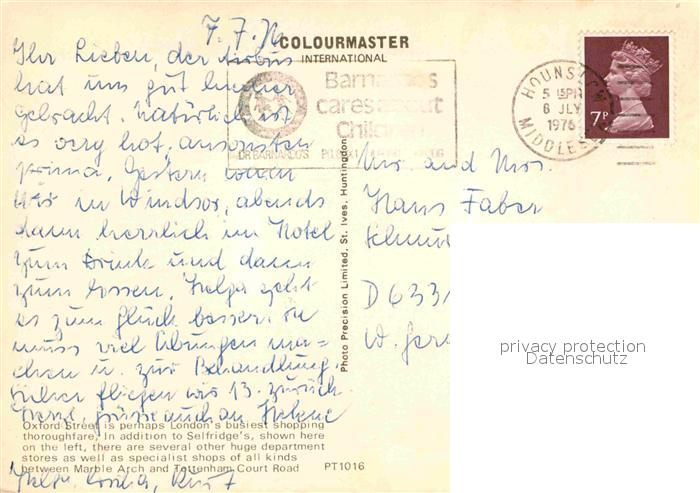 7.7.76
COLOURMASTER
INTERNATIONAL
Ihr Lieben, der Airbus
hat uns gut hierher
gebracht. Natürlich ist
es very hot, ansonsten
prima. Gestern waren
wir in Windsor, abends
dann herrlich im Hotel
zum Drink und dann
zum Essen. Helga geht
es zum Glück besser. Sie
muss viel Übungen ma-
chen u. zur Behandlung.
fliegen wir 13. zurück.
Herzl. Grüsse auch an Helene
Helga, Rolf
Barnardo's
cares about
Children
DR BARNARDO'S
HOUNSLOW
5 15PM
6 JLY
1976
MIDDLESEX
7P
Mr. and Mrs.
Hans Faber
D 633
W. Ger
Photo Precision Limited, St. Ives, Huntingdon
privacy protection
Datenschutz
Oxford Street is perhaps London's busiest shopping
thoroughfare. In addition to Selfridge's, shown here
on the left, there are several other huge department
stores as well as specialist shops of all kinds
between Marble Arch and Tottenham Court Road
PT1016